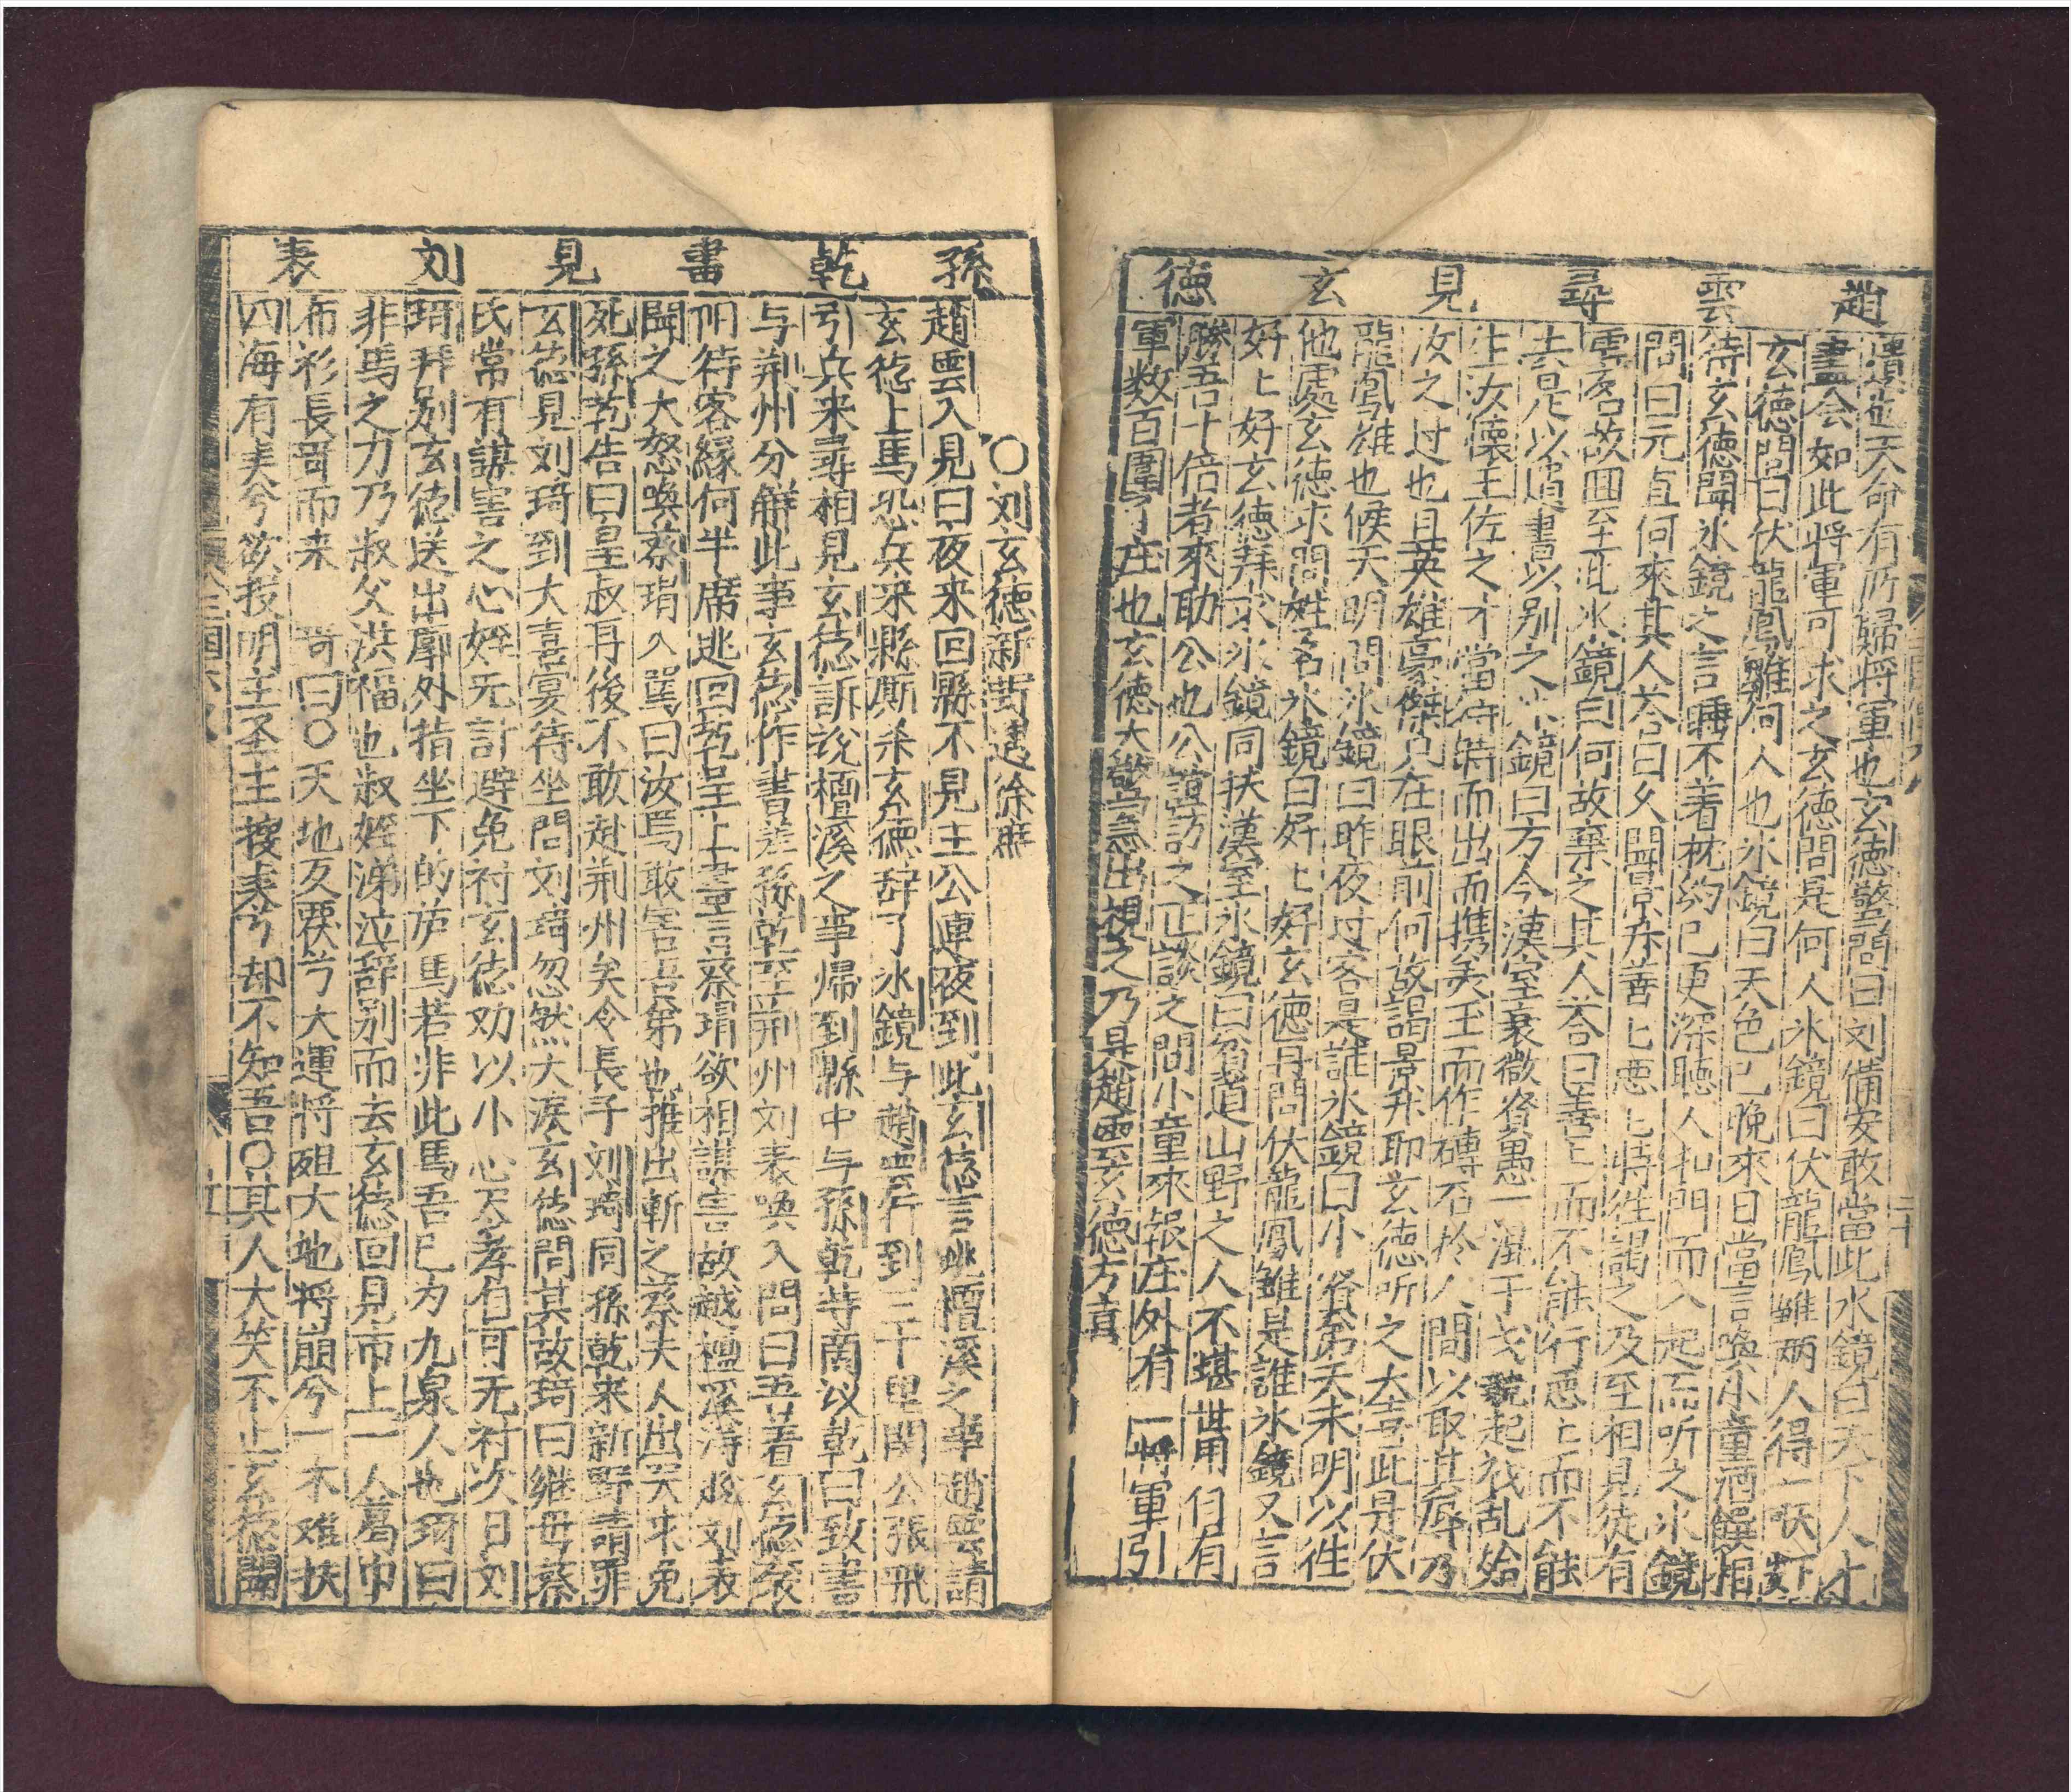 趙雲尋見玄徳
天命有所歸将軍也玄徳驚問曰刘備安敢當此水鏡曰天下人才
盡会如此将軍可求之玄徳問是何人水鏡曰伏龍鳳雛两人得一
玄徳問曰伏龍鳳雛何人也水鏡曰天色已晚來日當言喚小童酒饌相
待玄徳聞水鏡之言睡不着枕約已更深聽人扣門而入起而听之水鏡
問曰元直何來其人荅曰久聞景升善匕悪匕特徃謁之及至相見徒有
虚名故回至此水鏡曰何故棄之其人荅曰善匕而不能行悪匕而不能
去是以遺書以别之水鏡曰方今漢室衰微賢愚一混干戈競起衩乱始
生汝懐王佐之才當待時而出而携美玉而作磚石於人間以取其辱乃
汝之过也且英雄豪傑只在眼前何故謁景升耶玄徳听之大喜此是伏
龍鳳雏也候天明問水鏡曰昨夜过客是誰水鏡曰小賢弟天未明以徃
他處玄徳求問姓名水鏡曰好匕好玄徳再問伏龍鳳雏是誰水鏡又言
好匕好玄徳拜求水鏡同扶漢室水鏡曰貧道山野之人不堪世用自有
勝吾十倍者來助公也公誼訪之正談之間小童來報庄外有一将軍引
軍数百圍了庄也玄徳大驚急出視之乃是趙雲玄徳方喜
孫乾畵見刘表
〇刘玄徳新野遇徐庶
趙雲入見曰夜来回縣不見主公連夜到此玄徳言跳檀溪之事趙雲請
玄徳上馬恐兵来縣厮杀玄徳辞了水鏡与趙雲行到三十里関公張飛
引兵来尋相見玄徳訴说檀溪之事帰到縣中与孫乾等商议乾曰致書
与荆州分觧此事玄徳作書差孫乾至荆州刘表喚入問曰吾着玄徳襄
阳待客緣何半席逃回乾呈上書言蔡瑁欲相謀害故越檀溪得脱刘表
聞之大怒喚蔡瑁入駡曰汝焉敢害吾弟也推出斬之蔡夫人出哭求免
死孫乾告曰皇叔再後不敢赴荆州矣令長子刘琦同孫乾来新野請罪
玄徳見刘琦到大喜宴待坐間刘琦忽然大淚玄徳問其故琦曰継母蔡
氏常有謀害之心姪无計避免衬玄徳劝以小心尽孝自可无衬次日刘
琦拜别玄徳送出廓外指坐下的庐馬若非此馬吾已为九泉人也琦曰
非馬之力乃叔父洪福也叔姪涕泣辞别而去玄徳回見市上一人葛巾
布衫長哥而来 哥曰〇天地反覆兮大運将殂大地将崩兮一木难扶
四海有美兮欲投明主圣主搜表兮却不知吾〇其人大笑不止玄徳聞